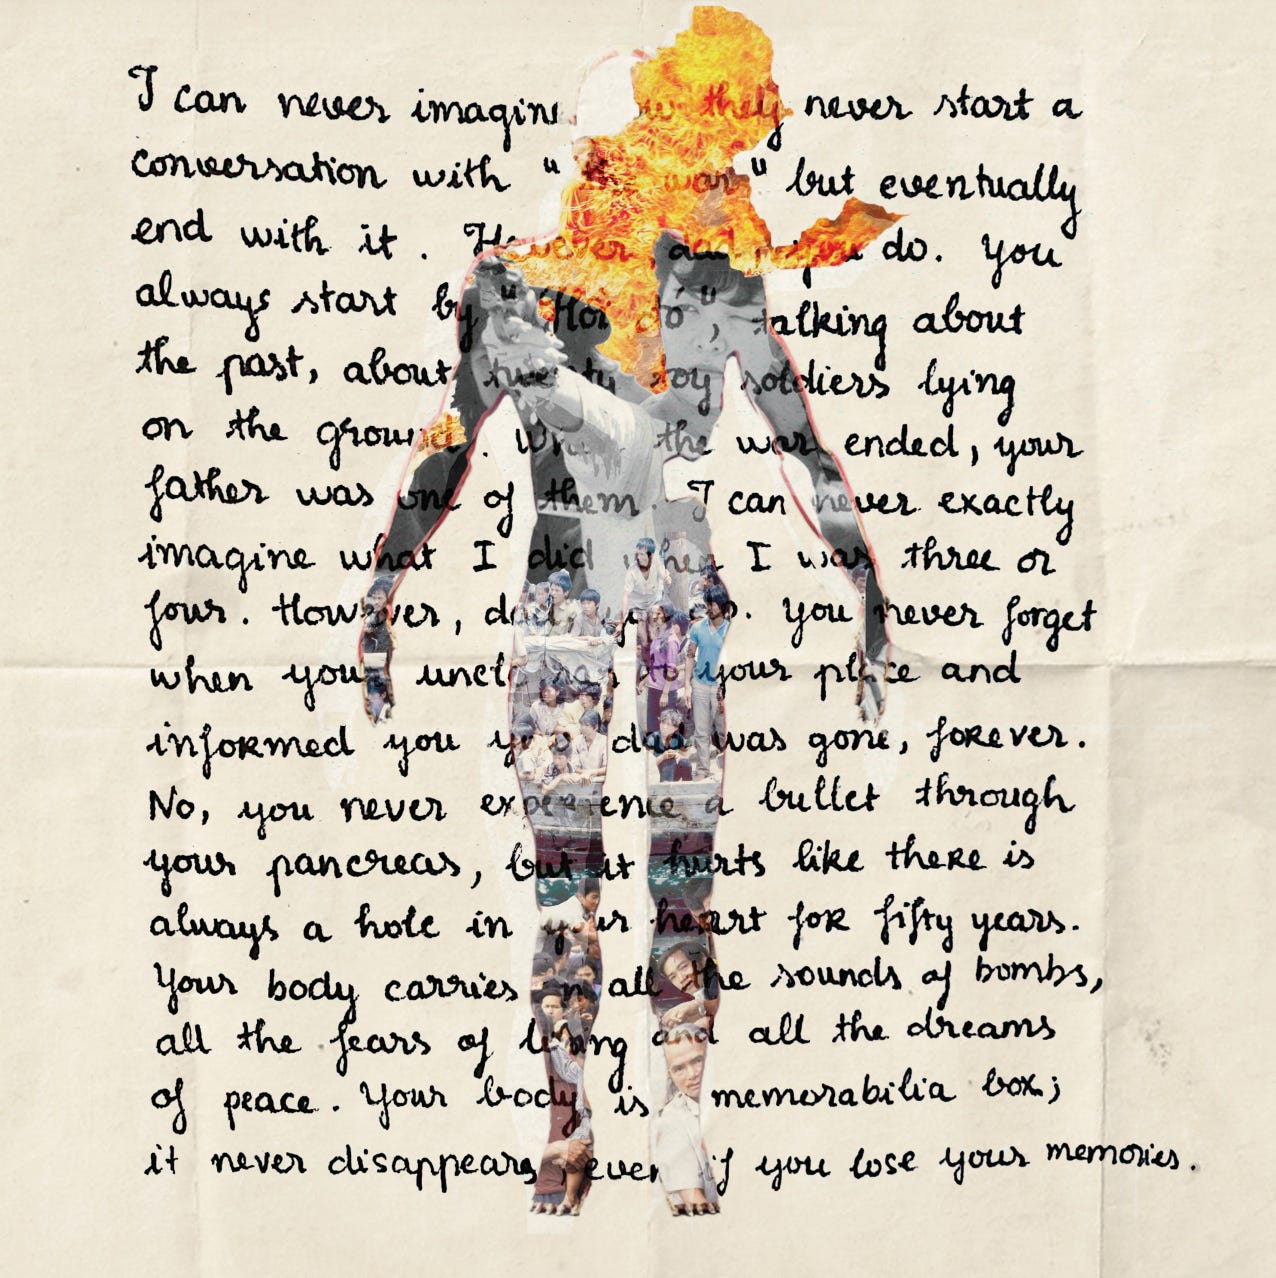 I can never imagine how they never start a
conversation with " war " but eventually
end with it . However dad, you do. You
always start by "Hồi đó", talking about
the past, about twenty toy soldiers lying
on the ground. When the war ended, your
father was one of them. I can never exactly
imagine what I did when I was three or
four. However, dad, you do. You never forget
when your uncle ran to your place and
informed you your dad was gone, forever.
No, you never experience a bullet through
your pancreas, but it hurts like there is
always a hole in your heart for fifty years.
Your body carries on all the sounds of bombs,
all the fears of living and all the dreams
of peace. Your body is memorabilia box;
it never disappears, even if you lose your memories.